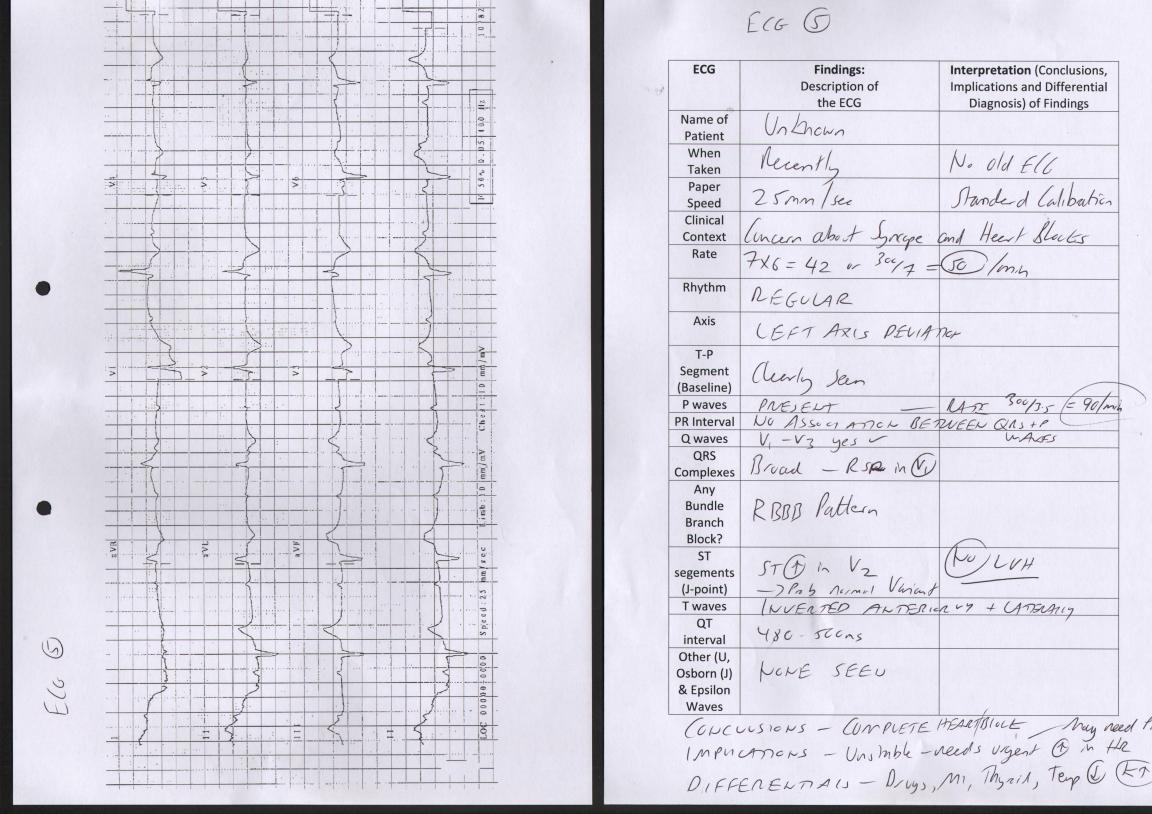 ECG 5
I
II
III
II
aVR
aVL
aVF
V1
V2
V3
V4
V5
V6
LOC 00000-0000 Speed: 25 mm/sec Limb: 10 mm/mV Chest: 10 mm/mV
ECG 5
ECG Findings: Description of the ECG Interpretation (Conclusions, Implications and Differential Diagnosis) of Findings
Name of Patient Unknown
When Taken Recently No old ECG
Paper Speed 25mm/sec Standard Calibration
Clinical Context Concern about Syncope and Heart Blocks
Rate 7x6 = 42 or 300/7 = 50 /min
Rhythm REGULAR
Axis LEFT AXIS DEVIATION
T-P Segment (Baseline) Clearly Seen
P waves PRESENT — RATE 300/3.5 = 90/min
PR Interval NO ASSOCIATION BETWEEN QRS + P WAVES
Q waves V1 - V3 yes
QRS Complexes Broad - RSR in V1
Any Bundle Branch Block? RBBB Pattern
ST segements (J-point) ST ↑ in V2 No LVH
→ Prob normal Variant
T waves INVERTED ANTERIORLY + LATERALLY
QT interval 480 - 500ms
Other (U, Osborn (J) & Epsilon Waves NONE SEEN
CONCLUSIONS - COMPLETE HEART BLOCK — May need
IMPLICATIONS - Unstable - needs urgent ↑ in HR
DIFFERENTIALS - Drugs, MI, Thyroid, Temp ↓ K↑